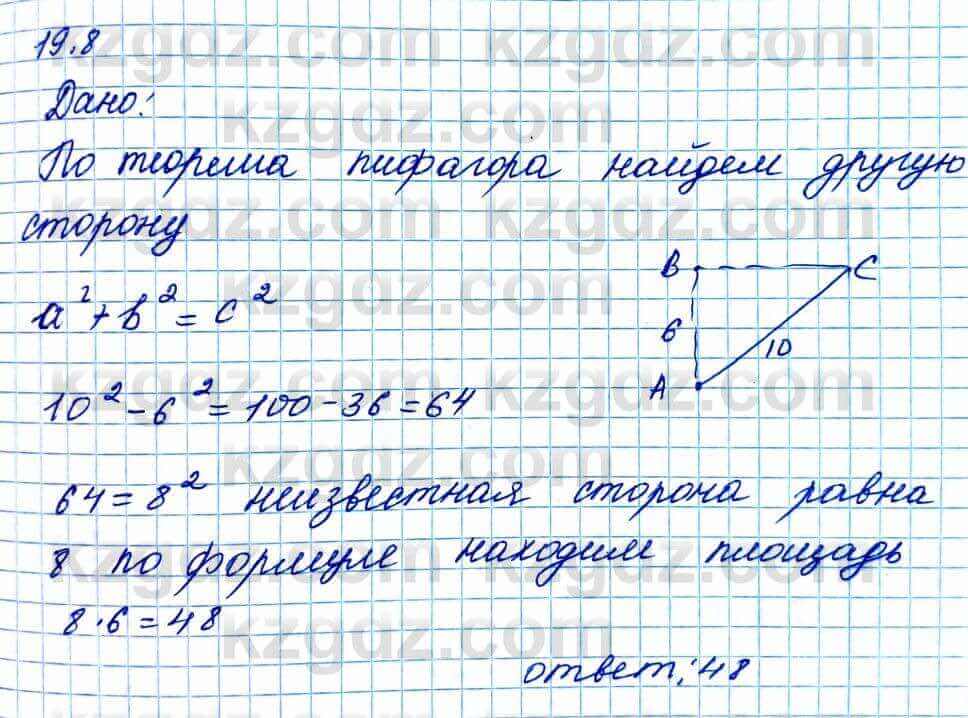 19.8
Дано:
По теорема пифагора найдем другую
сторону
a² + b² = c²
B C
6
10
A
10² - 6² = 100 - 36 = 64
64 = 8² неизвестная сторона равна
8 по формуле находим площадь
8 · 6 = 48
ответ: 48
kzgdz.com kzgdz.com
kzgdz.com
kzgdz.com kzgdz.com
kzgdz.com
kzgdz.com kzgdz.com
kzgdz.com
kzgdz.com kzgdz.com
kzgdz.com